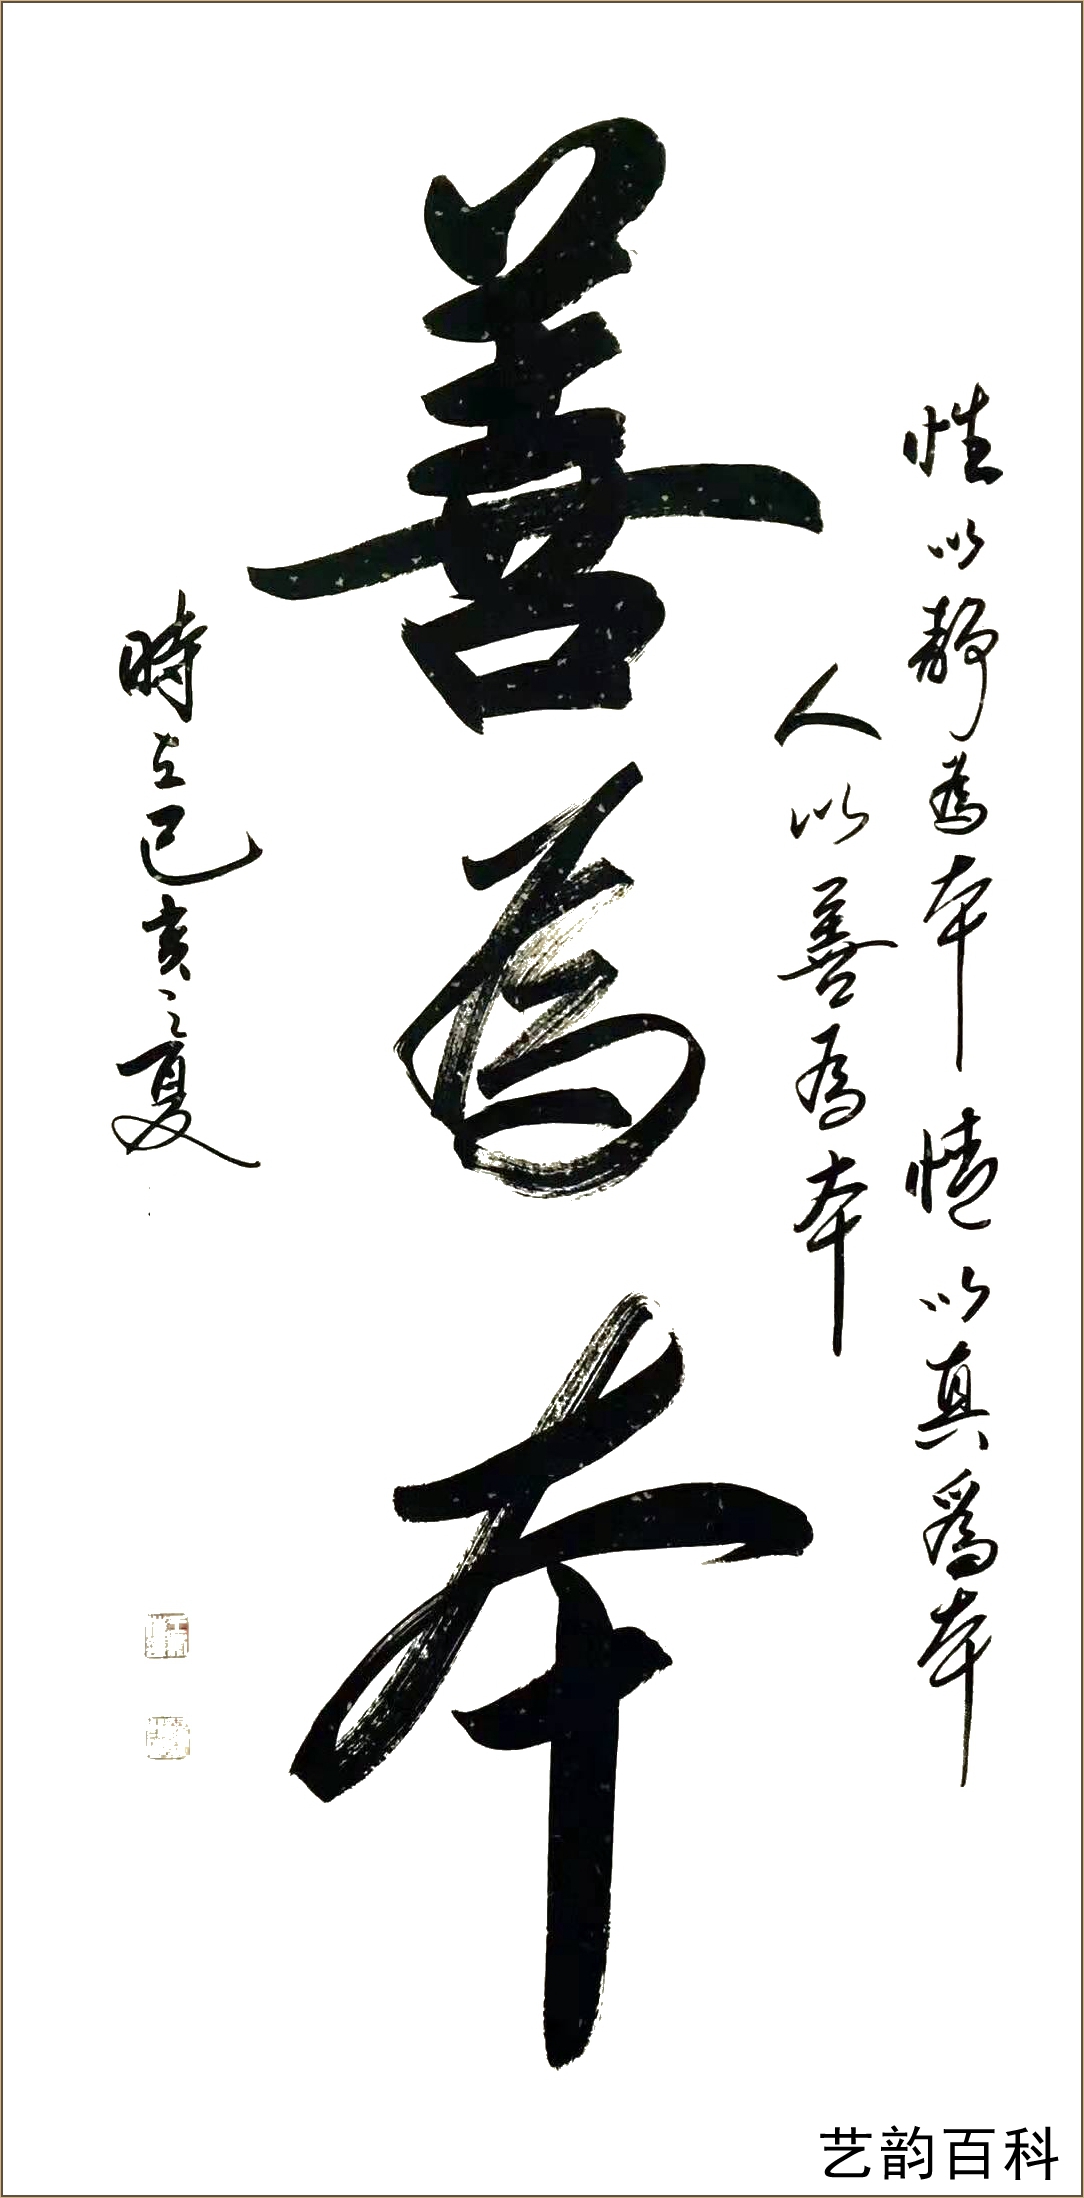 性以靜為本情以真爲本
人以善為本
善為本
時在己亥之夏
艺韵百科